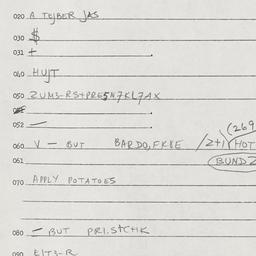 020 A TEJBER JAS
030 $
031 +
040 HUJT
050 ZUM3-RS+PRE5N7KL7AX
052 —
(269
060 V — BUT BARDO, FKKE /2+1 (HOT
061 BUNDZ
070 APPLY POTATOES
080 — BUT PRI.S+CHK
090 EIT3-R